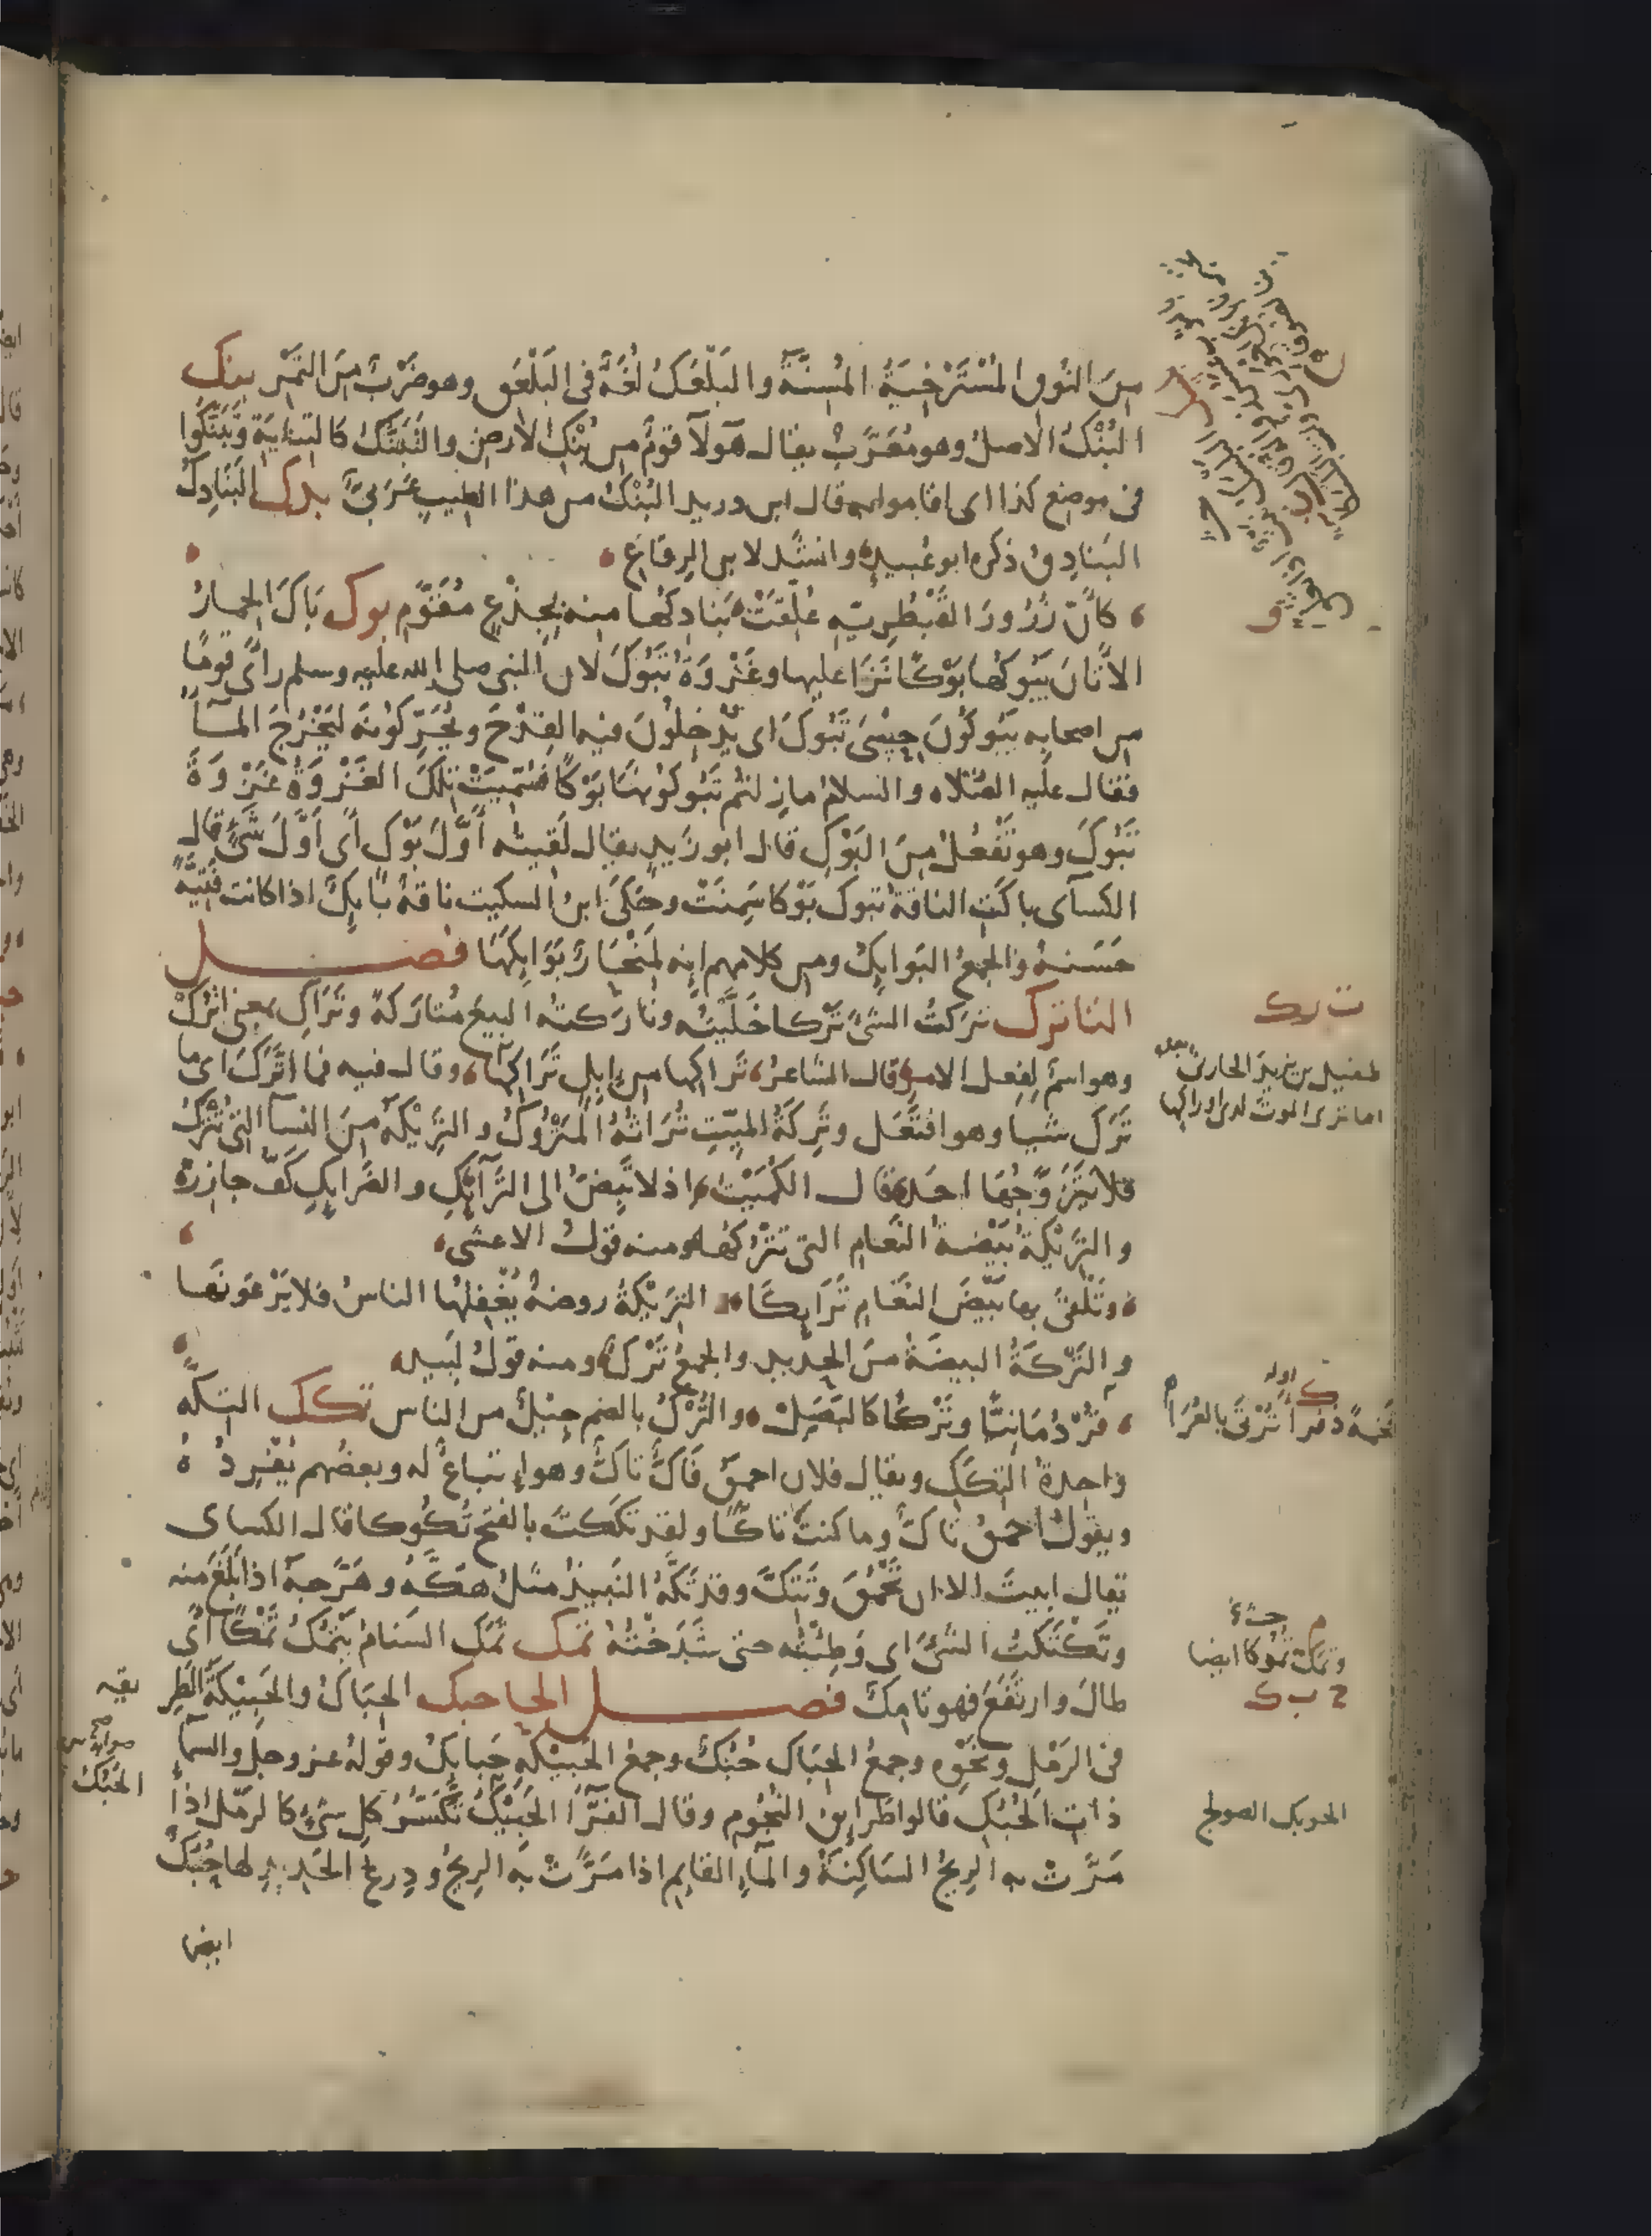 مِنَ النُوقِ المُسْتَرْخِيَةُ المُسِنَّةُ والبَلْعَكُ لُغَةٌ فى البَلْعَقِ وهو ضَرْبٌ مِنَ التَمْرِ بنك
البُنْكُ الاصلُ وهو مُعَرَّبٌ يقال هَولآ قومٌ من بُنْكِ الارضِ والتَبَنُّكُ كالتِنايَةِ وتَبَنَّكُوا
فى موضِع كذا اى اقاموا به قال ابن دريد البُنْكُ من هذا الطيبِ عَرَبىٌّ بدك البَنَادِكُ
البَنادِقُ ذكره ابو عُبيدٍ وانشَد لابن الرِقاعِ
كاَنَّ زُرُورَ القُبْطُرِيّةِ عُلِّقَتْ بَنادِكُها منه بِجِذْعٍ مُقَوَّمِ بوك بَاكَ الحِمارُ
الاَتَانَ يَبُوكُها بَوْكًا نَزَا عليها وغَزْوَةُ تَبُوكَ لان النبى صلى الله عليه وسلم راَى قومًا
من اصحابه يَبُوكُونَ حِسْىَ تَبُوكَ اى يُدْخِلُونَ فيه القِدْحَ ويُحَرِّكُونَه لِيَخْرُجَ المآءُ
فقال عليه الصلاه والسلامُ مازِلتُم تَبُوكُونَهَا بَوْكًا فسُمِّيَتْ تِلكَ الغَزْوَةُ غَزْوَةَ
تَبُوكَ وهو تَفْعُلُ مِنَ البَوْكِ قال ابو زَيدٍ يقال لَقيتُه اَوَّلَ بَوْكٍ اَى اَوَّلَ شَىْءٍ قال
الكسآى باكَتِ الناقةُ تبوك بَوْكا سَمِنَتْ وحَكَى ابنُ السكيت ناقةٌ بَايِكٌ اذا كانت فَتِيَّةً
حَسَنةً والجمعُ البَوايِكُ ومن كلامهم اِنه لَمِنْحَارٌ بَوَايِكَهَا فصل
التا ترك تركتُ الشىْ تَرْكا خَلَّيْتُه وتارَكتُه البيعَ مُتَارَكةً وتَرَاكِ بمعنى اتْرُكْ
وهو اسمٌ لِفِعل الامرِ قال الشاعرُ تَراكِها من اِبِلٍ تَراكِها وقال فيه فما اتَّرَكَ اى ما
تَرَكَ شيا وهو افتَعَل وتَرِكَةُ الميّتِ تُرَاثُهُ المَتْرُوكُ والتَرِيْكَةُ مِنَ النسآ التى تُتْرَكُ
فلا يَتَزَوَّجُهَا احَد قال الكُمَيْت اذ لا تَبِضُّ الى التَرَآئِكِ والضَرايِكِ كَفُّ جازِرْ
والتَرِيْكَةُ بَيْضةُ النَعامِ التى تَتْرُكها ومنه قولُ الاعشى
وتَلْقَى بها بَيْضَ النَعَامِ تَرَايِكَا التَرِيْكَةُ روضةٌ يُغْفِلُها الناسُ فلا يَرْعَونَها
والتَرْكَةُ البيضَةُ منَ الحديد والجمعُ تَرْكٌ ومنه قولُ لَبيد
قُرْدُمَانِيًّا وتَرْكًا كالبَصَلْ والتُرْكُ بالضم جِيْلٌ من الناس تكك التِكّةُ
واحِدةُ التِكَكِ ويقال فلان احمقُ فَاكٌّ تاكٌّ وهو اِتباعٌ له وبعضُهم يُفْرِدُهُ
ويقولُ احمقُ تَاكٌّ وما كنتَ تَاكًّا ولقد تكَكتَ بالفتح تُكُوكا قال الكساى
يقال ابيتَ الا ان تَحْمُقَ وتَتِكَّ وقد تَكَّهُ النَبيذُ مثلُ هَكَّهُ وهَرَّجَهُ اذا بَلَغَ منه
وتَكْتَكتُ الشىْ اى وَطِئْتُه حتى شَدَخْتُهُ تمك تَمَك السَنامُ يَتْمُكُ تَمْكًا اَى
طالَ وارتَفَعَ فهو تامِكٌ فصل الحا حبك الحِبَاكُ والحَبِيْكَةُ الطَرِ
فى الرَمْلِ ونحْوِه وجمعُ الحِبَاكِ حُبُكٌ وجمعُ الحَبيْكَةِ حَبايِكُ وقولُهُ عز وجل والسمآ
ذات الحُبُكِ قالوا طَرايِقُ النُجُومِ وقال الفَرَّآ الحَبِيْكُ تَكَسُّرُ كلِ شَىْءٍ كالرمْل اذا
مَرَّتْ به الرِيحُ الساكِنَةُ والمآءِ القايِمِ اذا مَرَّتْ بَه الرِيحُ ودِرعُ الحَديدِ لها حُبُكٌ
ايضا
ت رك
طفيل بن يزيد الحارثى
اما ترى الموت لدى اوراكها
فخمةً ذفرا تُرْتَى بالعُرَا
وتمك تموكا ايضا
ح ب ك
يقه
الحُبُكُ